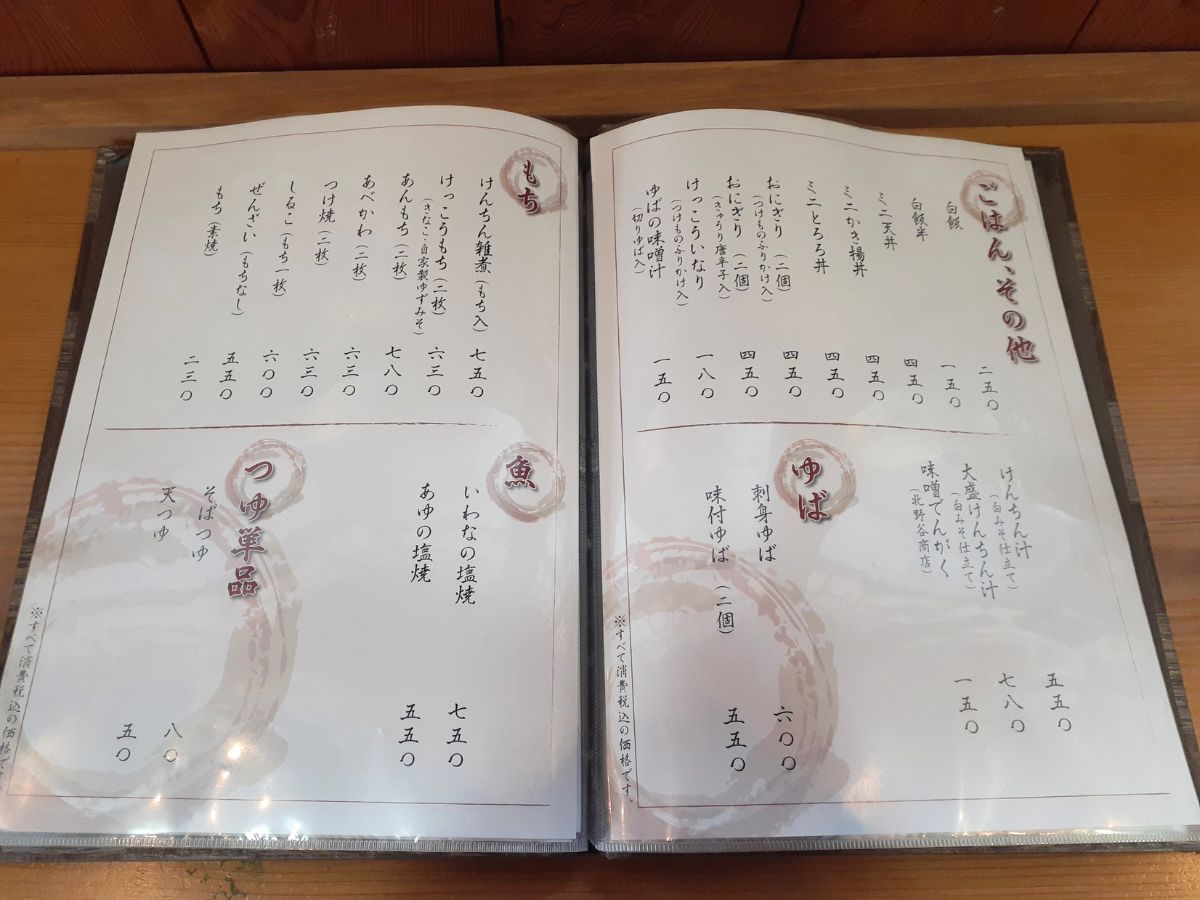 ごはん、その他
白飯 二五〇
白飯半 一五〇
ミニ天丼 四五〇
ミニかき揚丼 四五〇
ミニとろろ丼 四五〇
おにぎり(二個) 四五〇
(つけものふりかけ入)
おにぎり(二個) 四五〇
(きゅうり唐辛子入)
けっこういなり 一八〇
(つけものふりかけ入)
ゆばの味噌汁 一五〇
(切りゆば入)
けんちん汁 五五〇
(白みそ仕立て)
大盛けんちん汁 七八〇
(白みそ仕立て)
味噌でんがく 一五〇
(北野谷商店)
ゆば
刺身ゆば 六〇〇
味付ゆば(二個) 五五〇
※すべて消費税込の価格です。
もち
けんちん雑煮(もち入) 七五〇
けっこうもち(二枚) 六三〇
(きなこ・自家製ゆずみそ)
あんもち(二枚) 七八〇
あべかわ(二枚) 六三〇
つけ焼(二枚) 六三〇
しるこ(もち一枚) 六〇〇
ぜんざい(もちなし) 五五〇
もち(素焼) 二三〇
魚
いわなの塩焼 七五〇
あゆの塩焼 五五〇
つゆ単品
そばつゆ 八〇
天つゆ 五〇
※すべて消費税込の価格です。